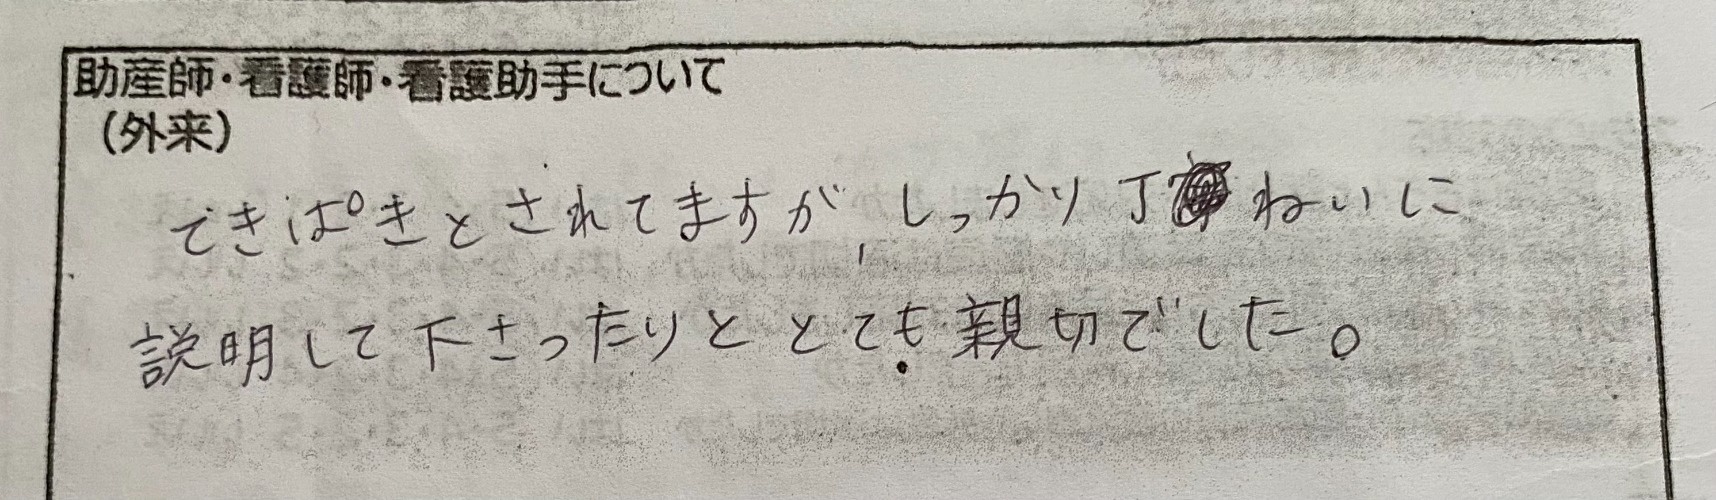 助産師・看護師・看護助手について
(外来)
てきぱきとされてますが、しっかり丁ねいに
説明して下さったりと とても親切でした。